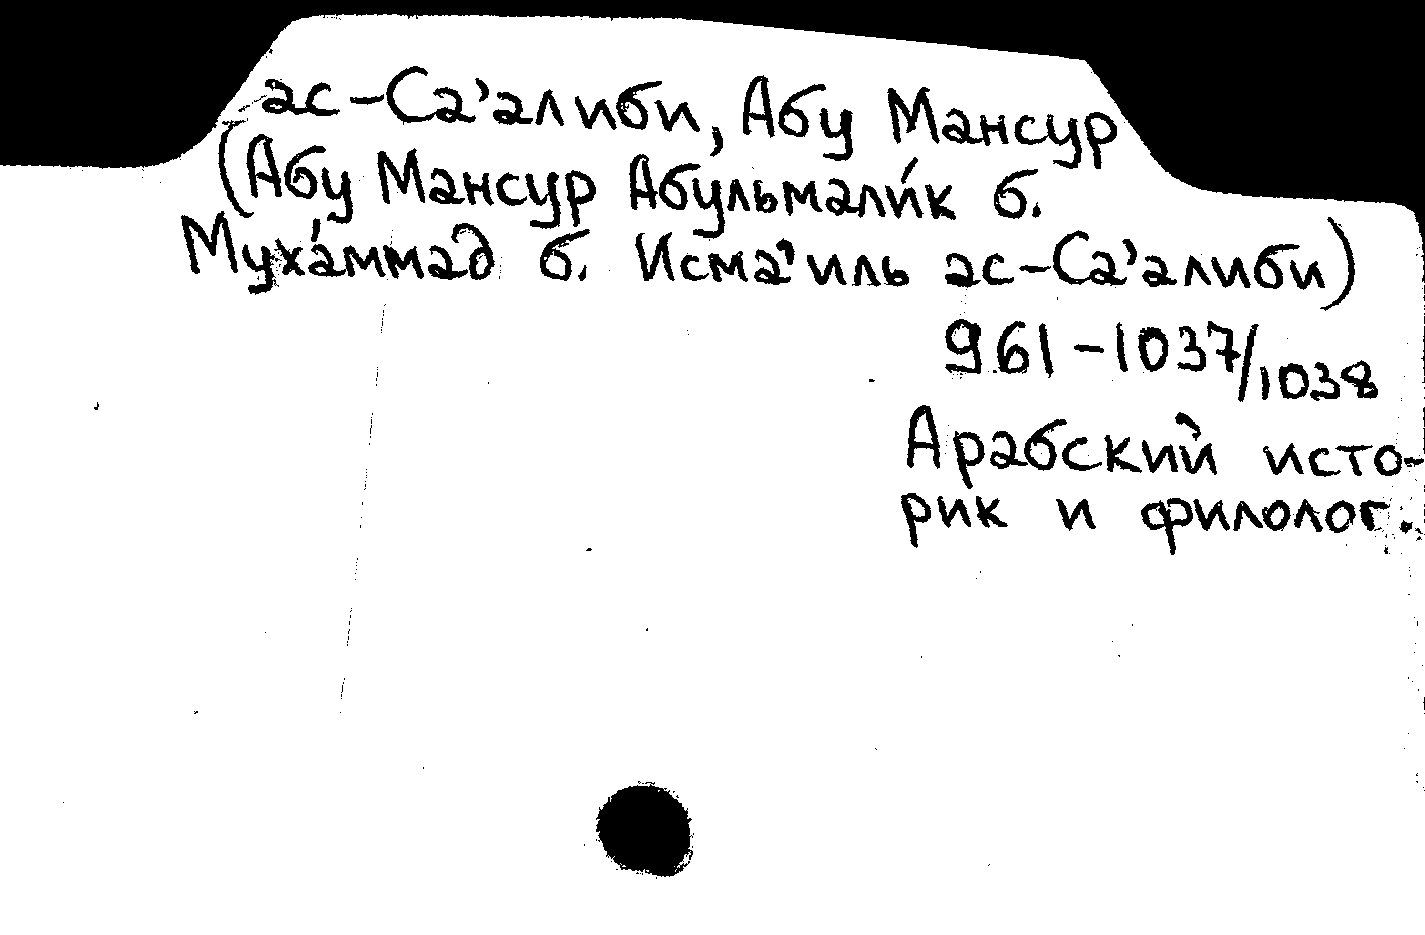 ас-Са’алиби, Абу Мансур
(Абу Мансур Абу́льмали́к б.
Муха́ммад б. Исма’иль ас-Са’алиби)
961-1037/1038
Арабский исто-
рик и филолог.